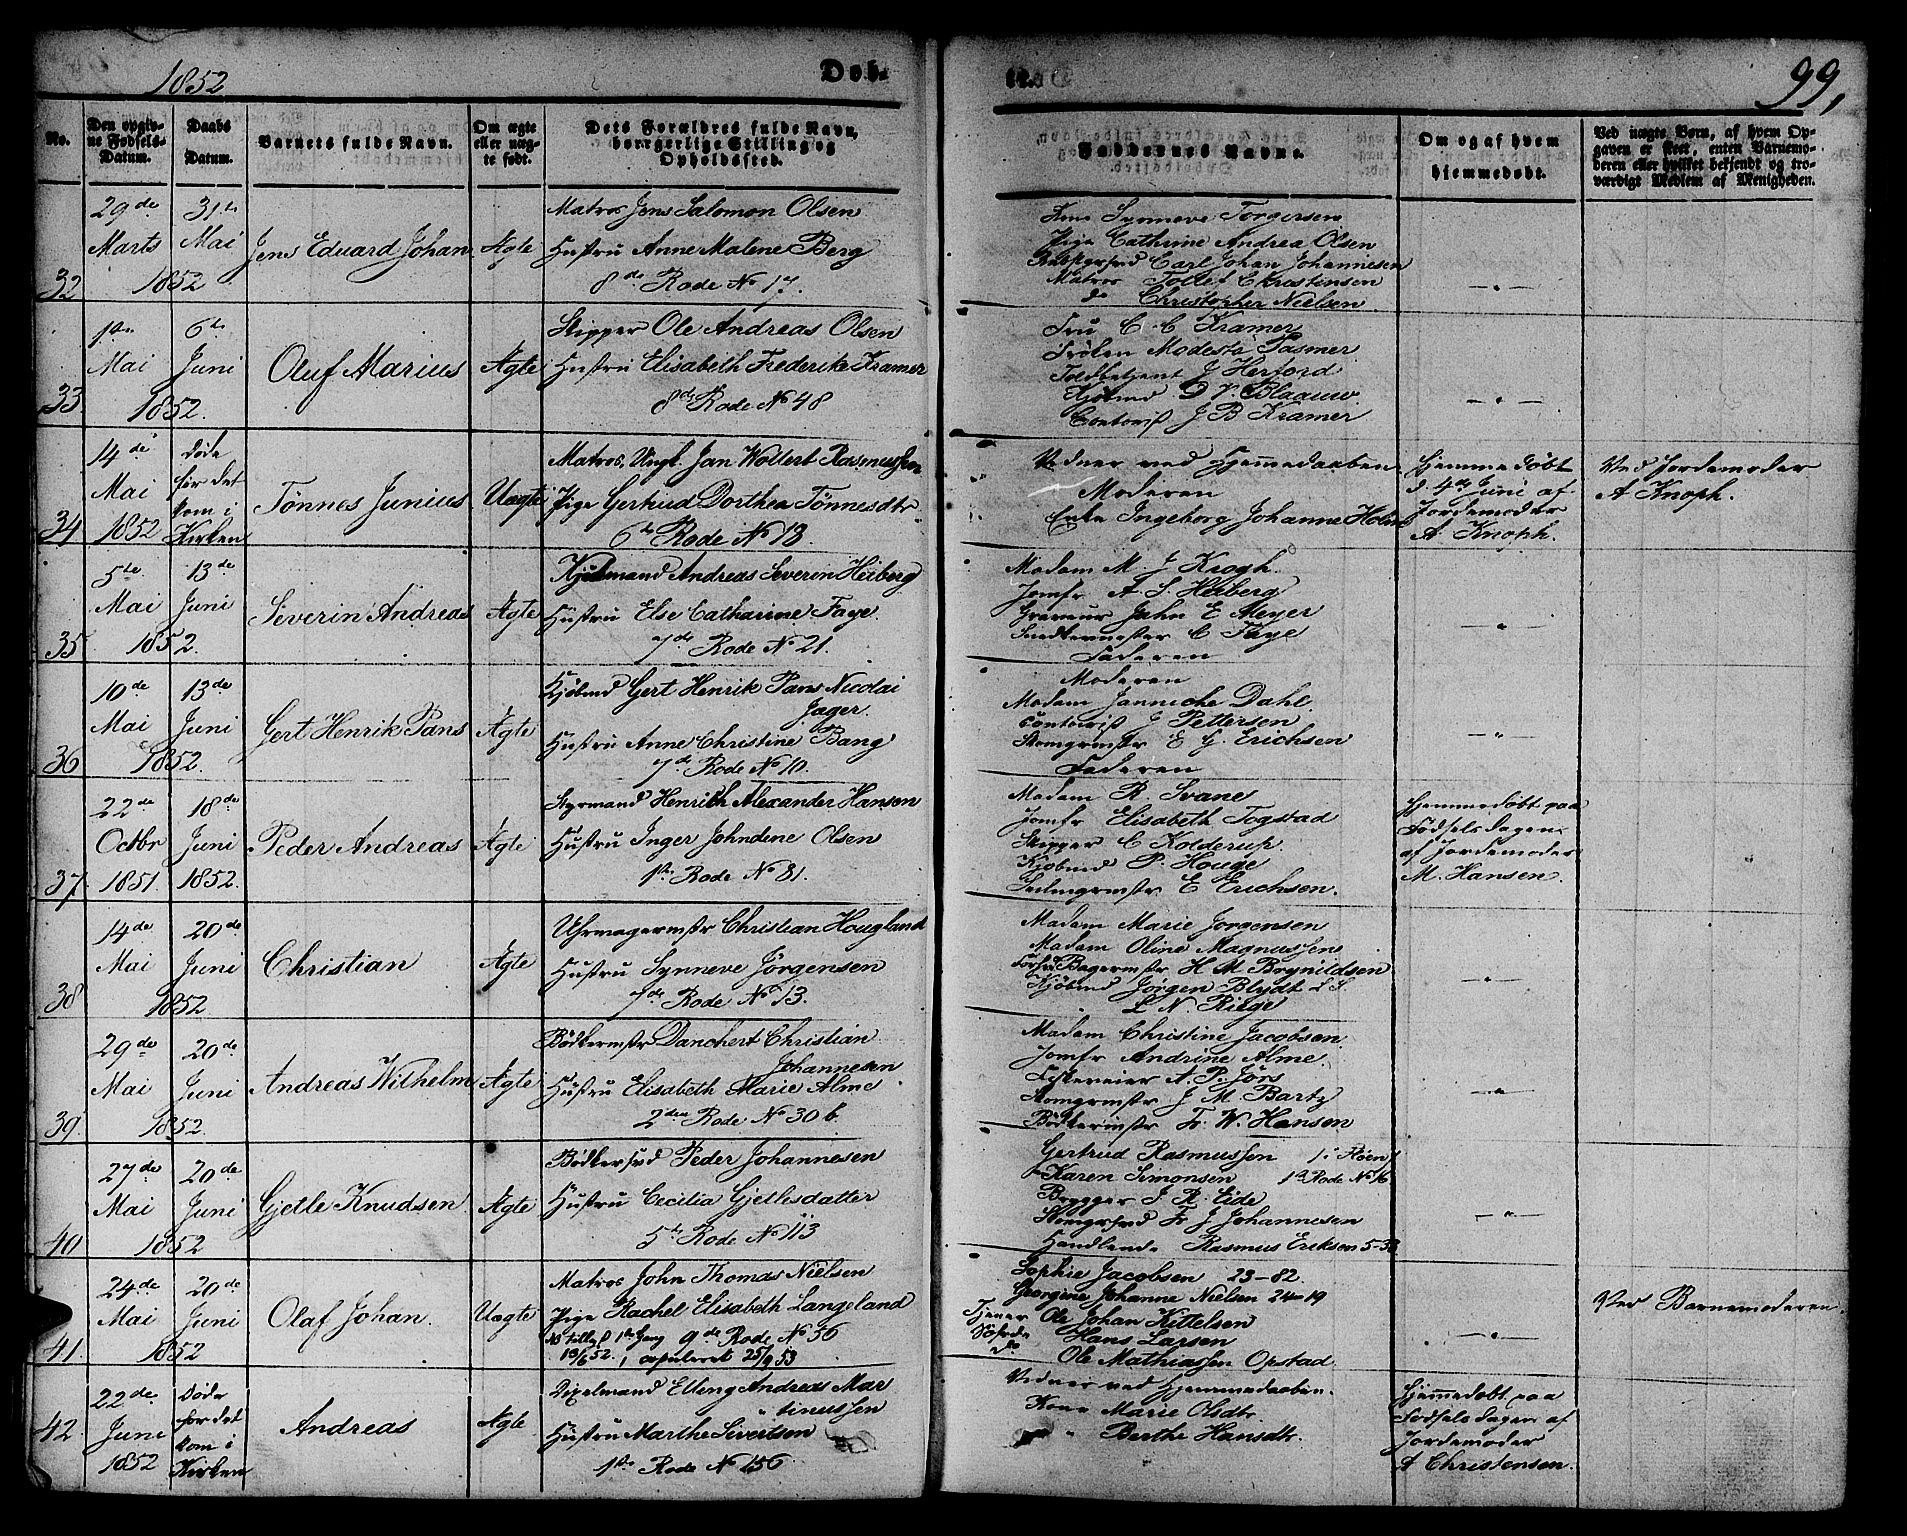 1852
Døb.
99,
No.
Den opgiv-
ne Fødsels-
Datum.
Daabs
Datum.
Barnets fulde Navn.
Om ægte
eller uæg-
te født.
Dets Forældres fulde Navn,
borgerlige Stilling og
Opholdssted.
Faddernes Navne.
Om og af hvem
hjemmedøbt.
Ved uægte Børn, af hvem Op-
gaven er skeet, enten Barnemo-
deren eller hvilket bekjendt og tro-
værdigt Medlem af Menigheden.
32
29de
Marts
31te
Mai
1852
Jens Eduard Johan
Ægte
Matros Jens Salomon Olsen
Hustru Anne Malene Berg
8de Rode No 17.
Kone Synneve Torgersen
Pige Cathrine Andrea Olsen
Carl Johan Johannesen
Matros Tollef Christensen
do Christopher Nielsen
-„-
33
1ste
Mai
6te
Juni
1852.
Oluf Marius
Ægte
Skipper Ole Andreas Olsen
Hustru Elisabeth Frederikke Kramer
8de Rode No 48
Fru C. C. Kramer
Frøken Modesta Pasmer
Toldbetjent J Herford
Kjøbmd D V. Blaauw
Contorist J B Kramer
-„-
34
14de
Mai
1852
Døde
før det
kom i
Kirken
Tønnes Junius
Uægte
Matros, Ungk. Jan Wollert Rasmussen
Pige Gertrud Dorthea Tønnesdtr
6te Rode No 13
Vidner ved Hjemmedaaben
Moderen
Enke Ingeborg Johanne Holm
Hjemmedøbt
d. 4de Juni af
Jordemoder
A. Knoph.
Ved Jordemoder
A Knoph.
35
5te
Mai
13de
Juni
1852.
Severin Andreas
Ægte
Kjøbmand Andreas Severin Heiberg
Hustru Else Catharine Faye.
7de Rode No 21.
Madam M. J Krogh.
Jomfr A. S. Heiberg
Graveur John E Meyer
Snedkermester C Faye
Faderen
-„-
36
10de
Mai
13de
Juni
1852.
Gert Henrik Pans
Ægte
Kjøbmd Gert Henrik Pans Nicolai
Jæger.
Hustru Anne Christine Bang
7de Rode No 10.
Moderen
Madam Janniche Dahl.
Contorist J Pettersen
Skomgrmstr E G. Erichsen
Faderen
-„-
37.
22de
Octbr
1851.
18de
Juni
1852.
Peder Andreas
Ægte
Styrmand Henrich Alexander Hansen
Hustru Inger Johndene Olsen
1ste Rode No 81.
Madam R. Svane
Jomfr Elisabeth Togstad
Skipper C Kolderup.
Kjøbmd P. Houge
Seilmgrmstr E Erichsen.
Hjemmedøbt paa
Fødselsdagen
af Jordemoder
M. Hansen.
38
14de
Mai
20de
Juni
1852.
Christian
Ægte
Uhrmagermstr Christian Hougland
Hustru Synneve Jørgensen
7de Rode No 13.
Madam Marie Jørgensen
Madam Oline Magnussen
Bagermstr H M Brynildsen
Kjøbmd Jørgen Blydt
L N. Riege
-„-
39.
29de
Mai
20de
Juni
1852.
Andreas Wilhelm
Ægte
Bødkermstr Danchert Christian
Johannesen
Hustru Elisabeth Marie Alme
2den Rode No 30 b.
Madam Christine Jacobsen
Jomfr Andrine Alme.
A. P. Jørs
Skomgrmstr J M. Bartz
Bødkermstr Fr. W. Hansen
-„-
40
27de
Mai
20de
Juni
1852
Gjetle Knudsen
Ægte
Bødkersvd Peder Johannesen
Hustru Cecilia Gjetlesdatter
5te Rode No 113
Gertrud Rasmussen
Karen Simonsen 1ste Rode No 16
Brygger J. R. Eide
Skomgrsvd Fr J Johannesen
Handlende Rasmus Eriksen 5-38
-„-
41.
24de
Mai
20de
Juni
1852
Olaf Johan.
Uægte
Matros John Thomas Nielsen
Pige Rachel Elisabeth Langeland
9de Rode No 56
13/6 52, copuleret 25/9 53
Sophie Jacobsen 23-82.
Georgine Johanne Nielsen 24-19
Tjener Ole Johan Kittelsen
Hans Larsen
Do Ole Mathiassen Opstad
-„-
Ved Barnemoderen.
42.
22de
Juni
1852
Døde
før det
kom i
Kirken
Andreas
Ægte
Elling Andreas Mar
tinussen
Hustru Marthe Sivertsen
1ste Rode No 156
Vidner ved Hjemmedaaben.
Kone Marie Olsdtr.
„ Berthe Hansdtr.
Hjemmedøbt paa
Fødselsdagen af
Jordemoder
A Christensen.